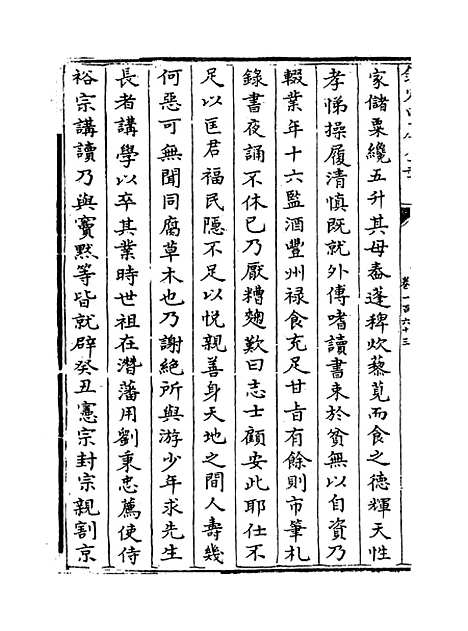 家儲粟纔五升其母舂蓬稗炊藜莧而食之德輝天性
孝悌操履清慎既就外傅嗜讀書束於貧無以自資乃
輟業年十六監酒豐州禄食充足甘㫖有餘則市筆札
錄書夜誦不休已乃厭糟麴歎曰志士顧安此耶仕不
足以匡君福民隱不足以悦親善身天地之間人壽幾
何惡可無聞同腐草木也乃謝絶所與游少年求先生
長者講學以卒其業時世祖在濳藩用劉秉忠薦使侍
裕宗講讀乃與竇默等皆就辟癸丑憲宗封宗親割京
卷一百六十三